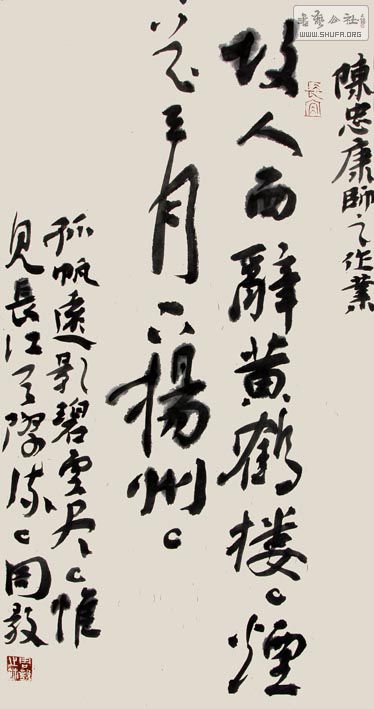 書藝公社
WWW.SHUFA.ORG
陳忠康師之作業
長宜
故人西辭黄鶴楼煙
花三月下揚州
孤帆遠影碧空尽惟
見長江天際流周